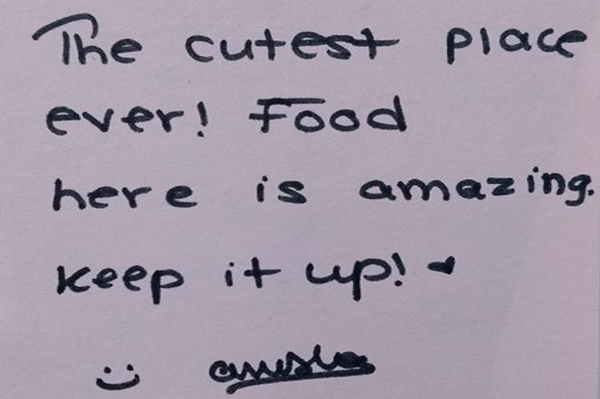 The cutest place
ever! Food
here is amazing.
keep it up! ♥
:)